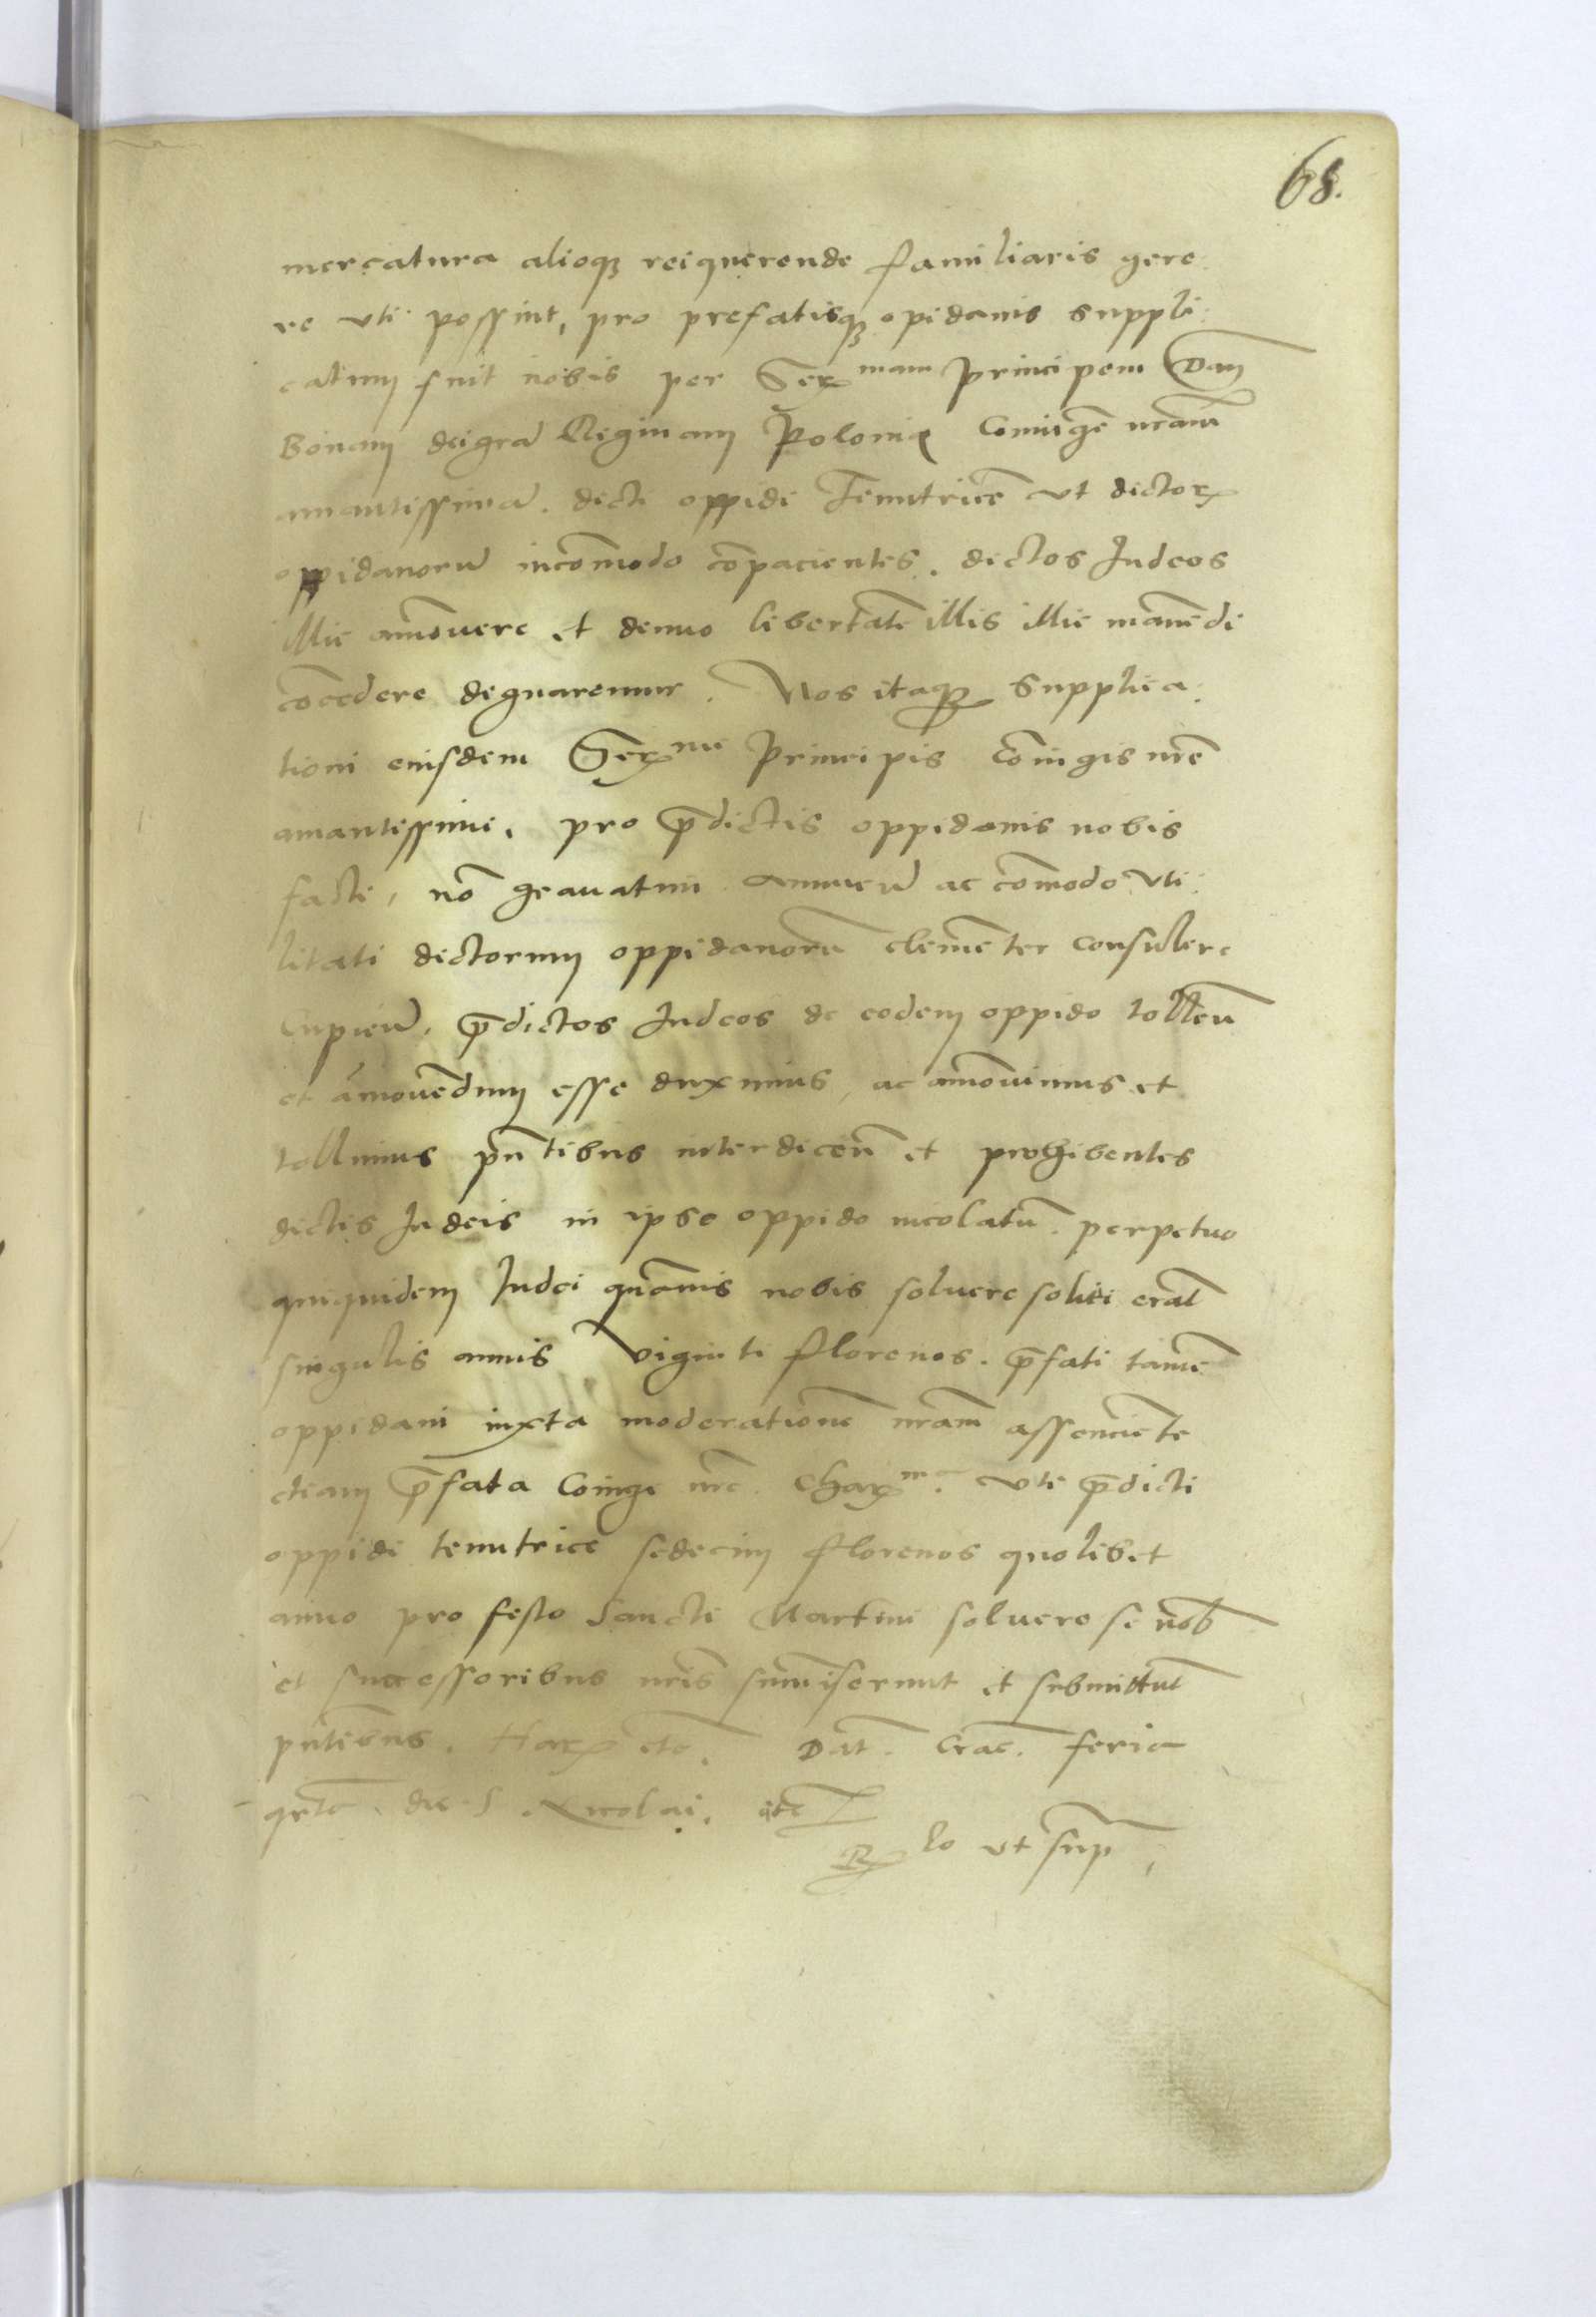 68.
mercatura alioq₃ rei querende familiaris gere
re vti possint, pro prefatisq₃ opidanis suppli
catum fuit nobis per Serᵐᵃᵐ principem Dnam
Bonam dei gra Reginam Polonię Coniugē nram
amantissimā. dicti oppidi Tenutricē vt dictorꝝ
oppidanorū incōmodo cōpacientes. dictos Iudeos
illic amōuere et denuo libertatē illis illic manēdi
cōcedere dignaremur. Nos itaq₃ supplica
tioni eiusdem Serᵐᵉ Principis Cōiugis nrē
amantissime. pro p̄dictis oppidanis nobis
facte, nō grauatim annueñ ac cōmodo vti
litati dictorum oppidanorū clemēter consulere
Cupieñ. p̄dictos Iudeos de eodem oppido tolleñ
et amouēdum esse duximus, ac amōuimus et
tollimus pn̄tibus interdiceñ et prohibentes
dictis Iudeis in ipso oppido incolatū. perpetuo
quiquidem Iudei quāuis nobis soluere soliti erāt
singulis annis Viginti florenos. p̄fati tamē
oppidani iuxta moderationē nrām assenciēte
etiam p̄fata Coiuge nrā. Charᵐᵃ. vti p̄dicti
oppidi tenutrice sedecim florenos quolibet
anno pro festo Sancti Martini soluere se nob̄
et successoribus nris̄ summiserunt et submittūt
pn̄tibus. Harꝝ etc. Dat. Crac. feria
qrta. die S. Nicolai. etc
Rˡᵒ vt sup̄,